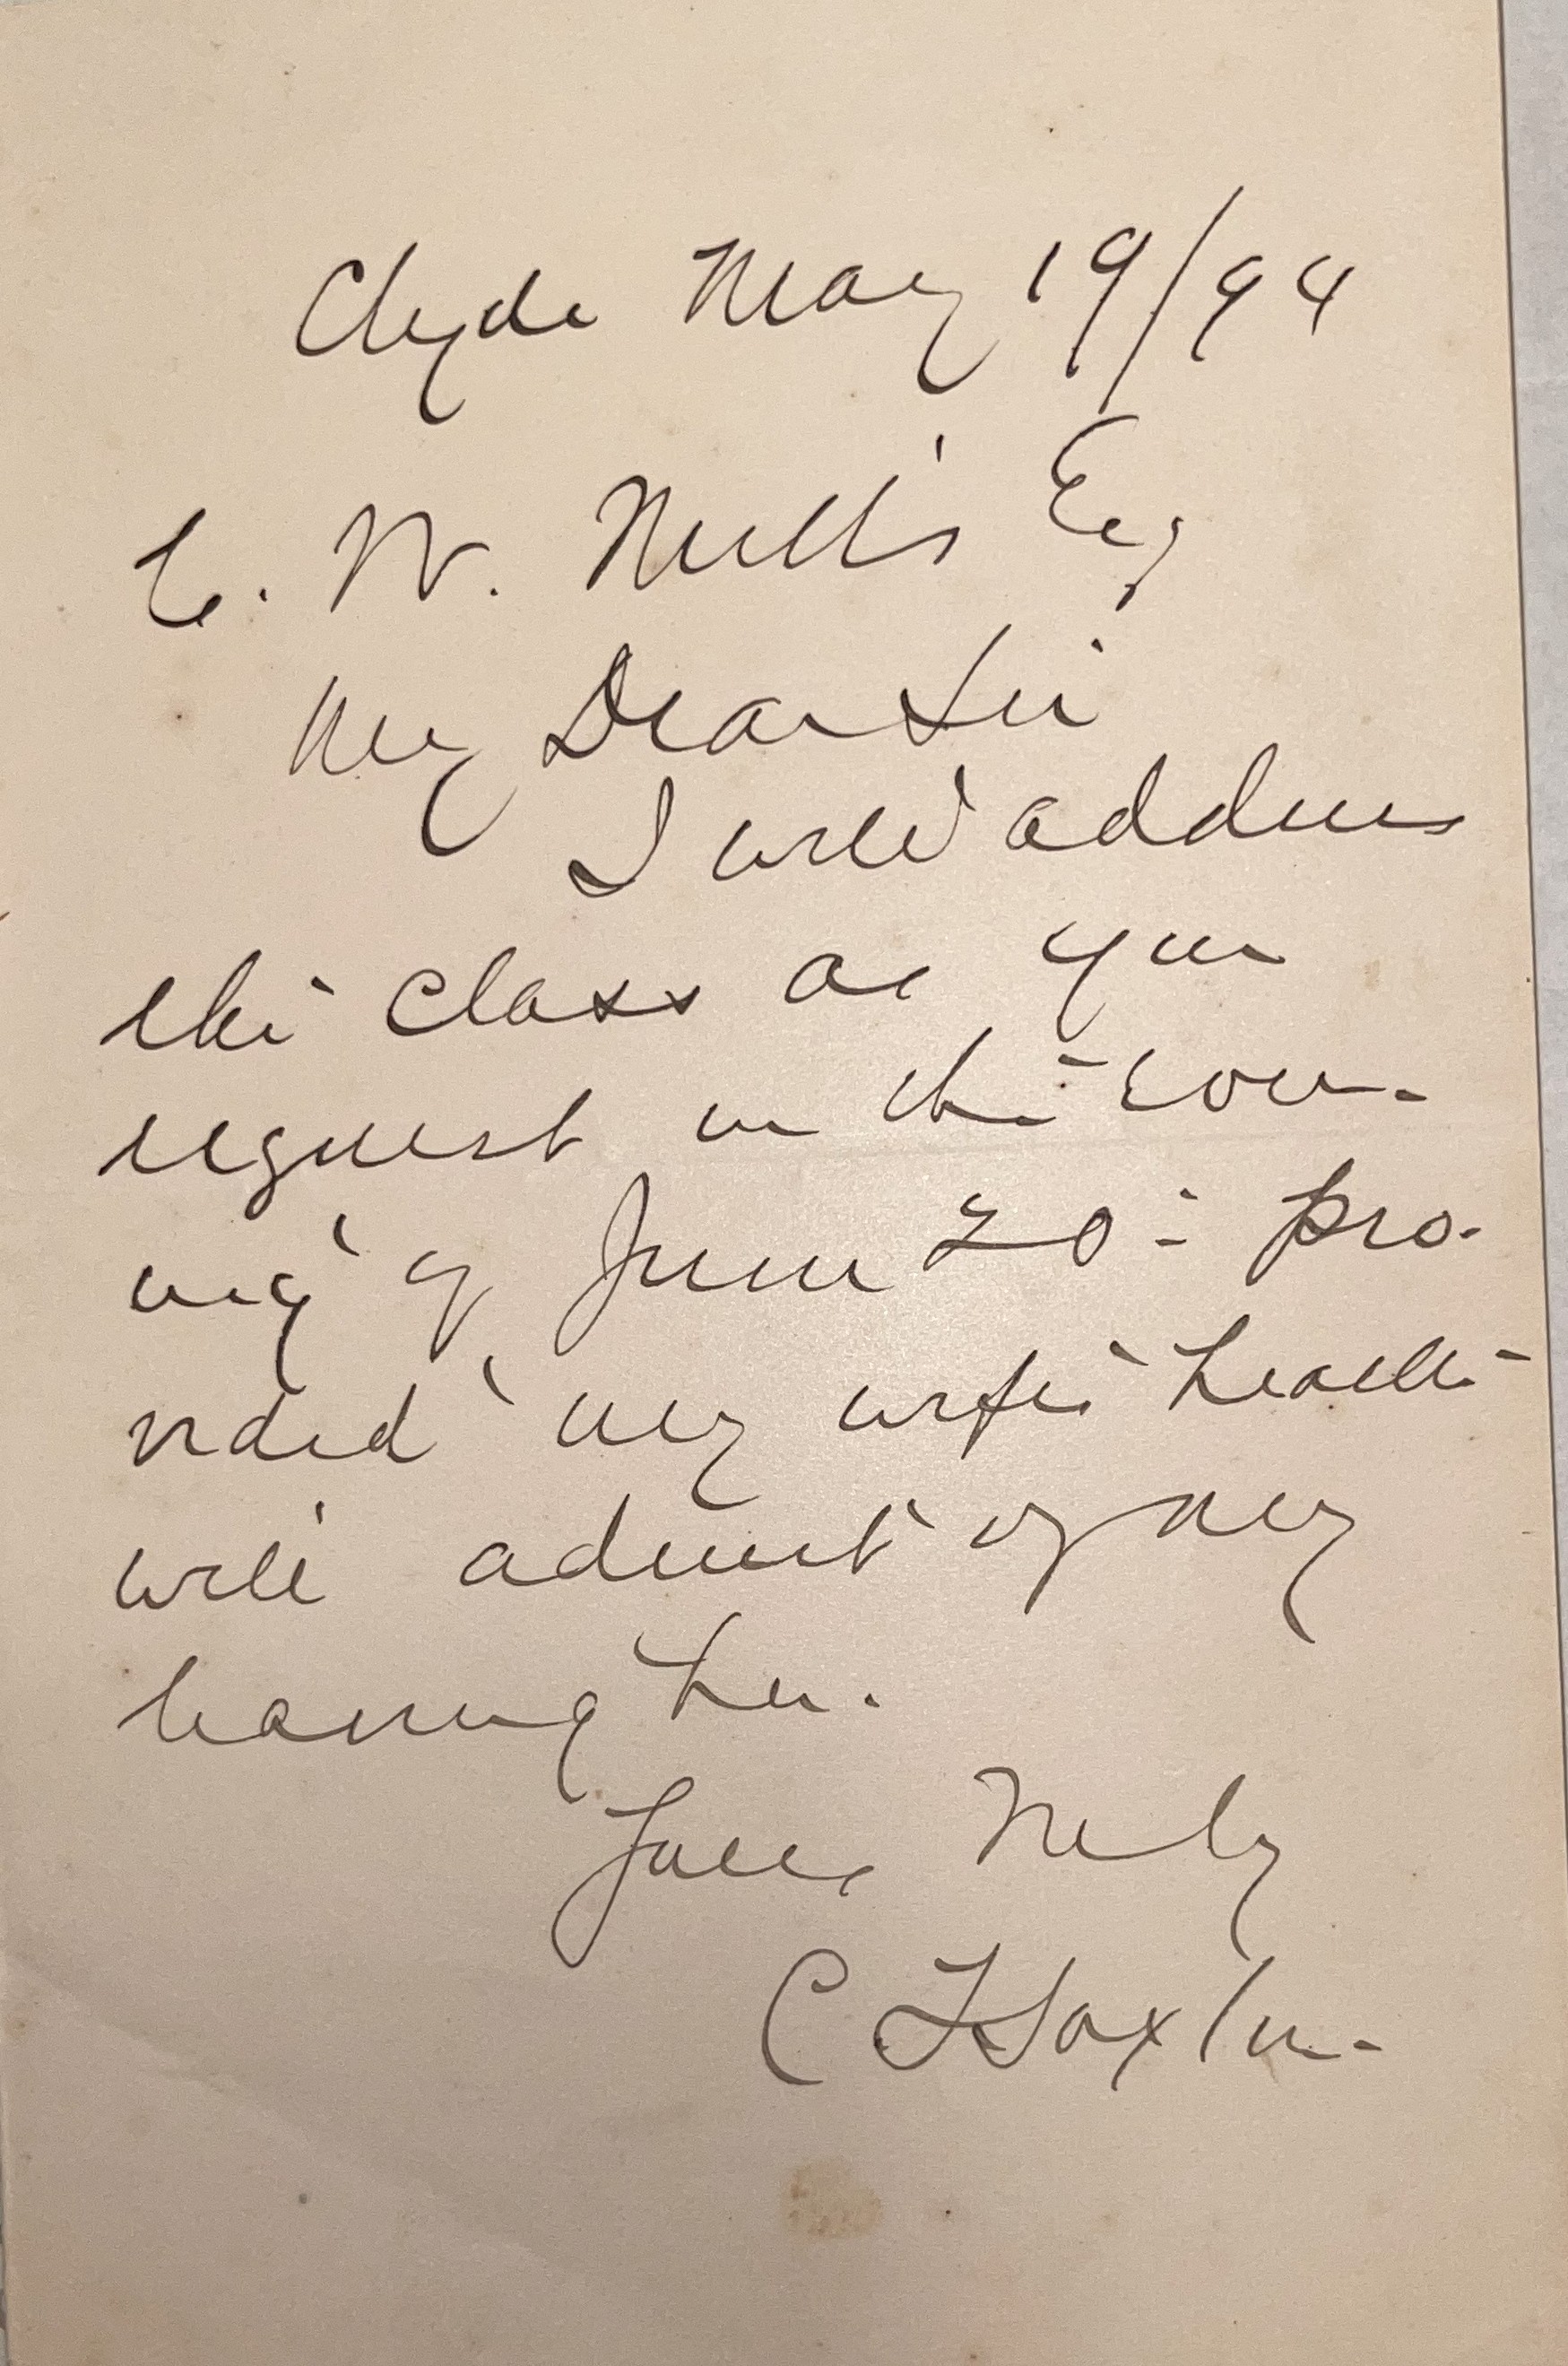 Clyde May 19/94
C. W. Mills Esq
My Dear Sir
I will address
the class as you
request in the eve-
ning of June 20 - pro-
vided my wife's health
will admit of my
leaving her.
Yours Truly
C